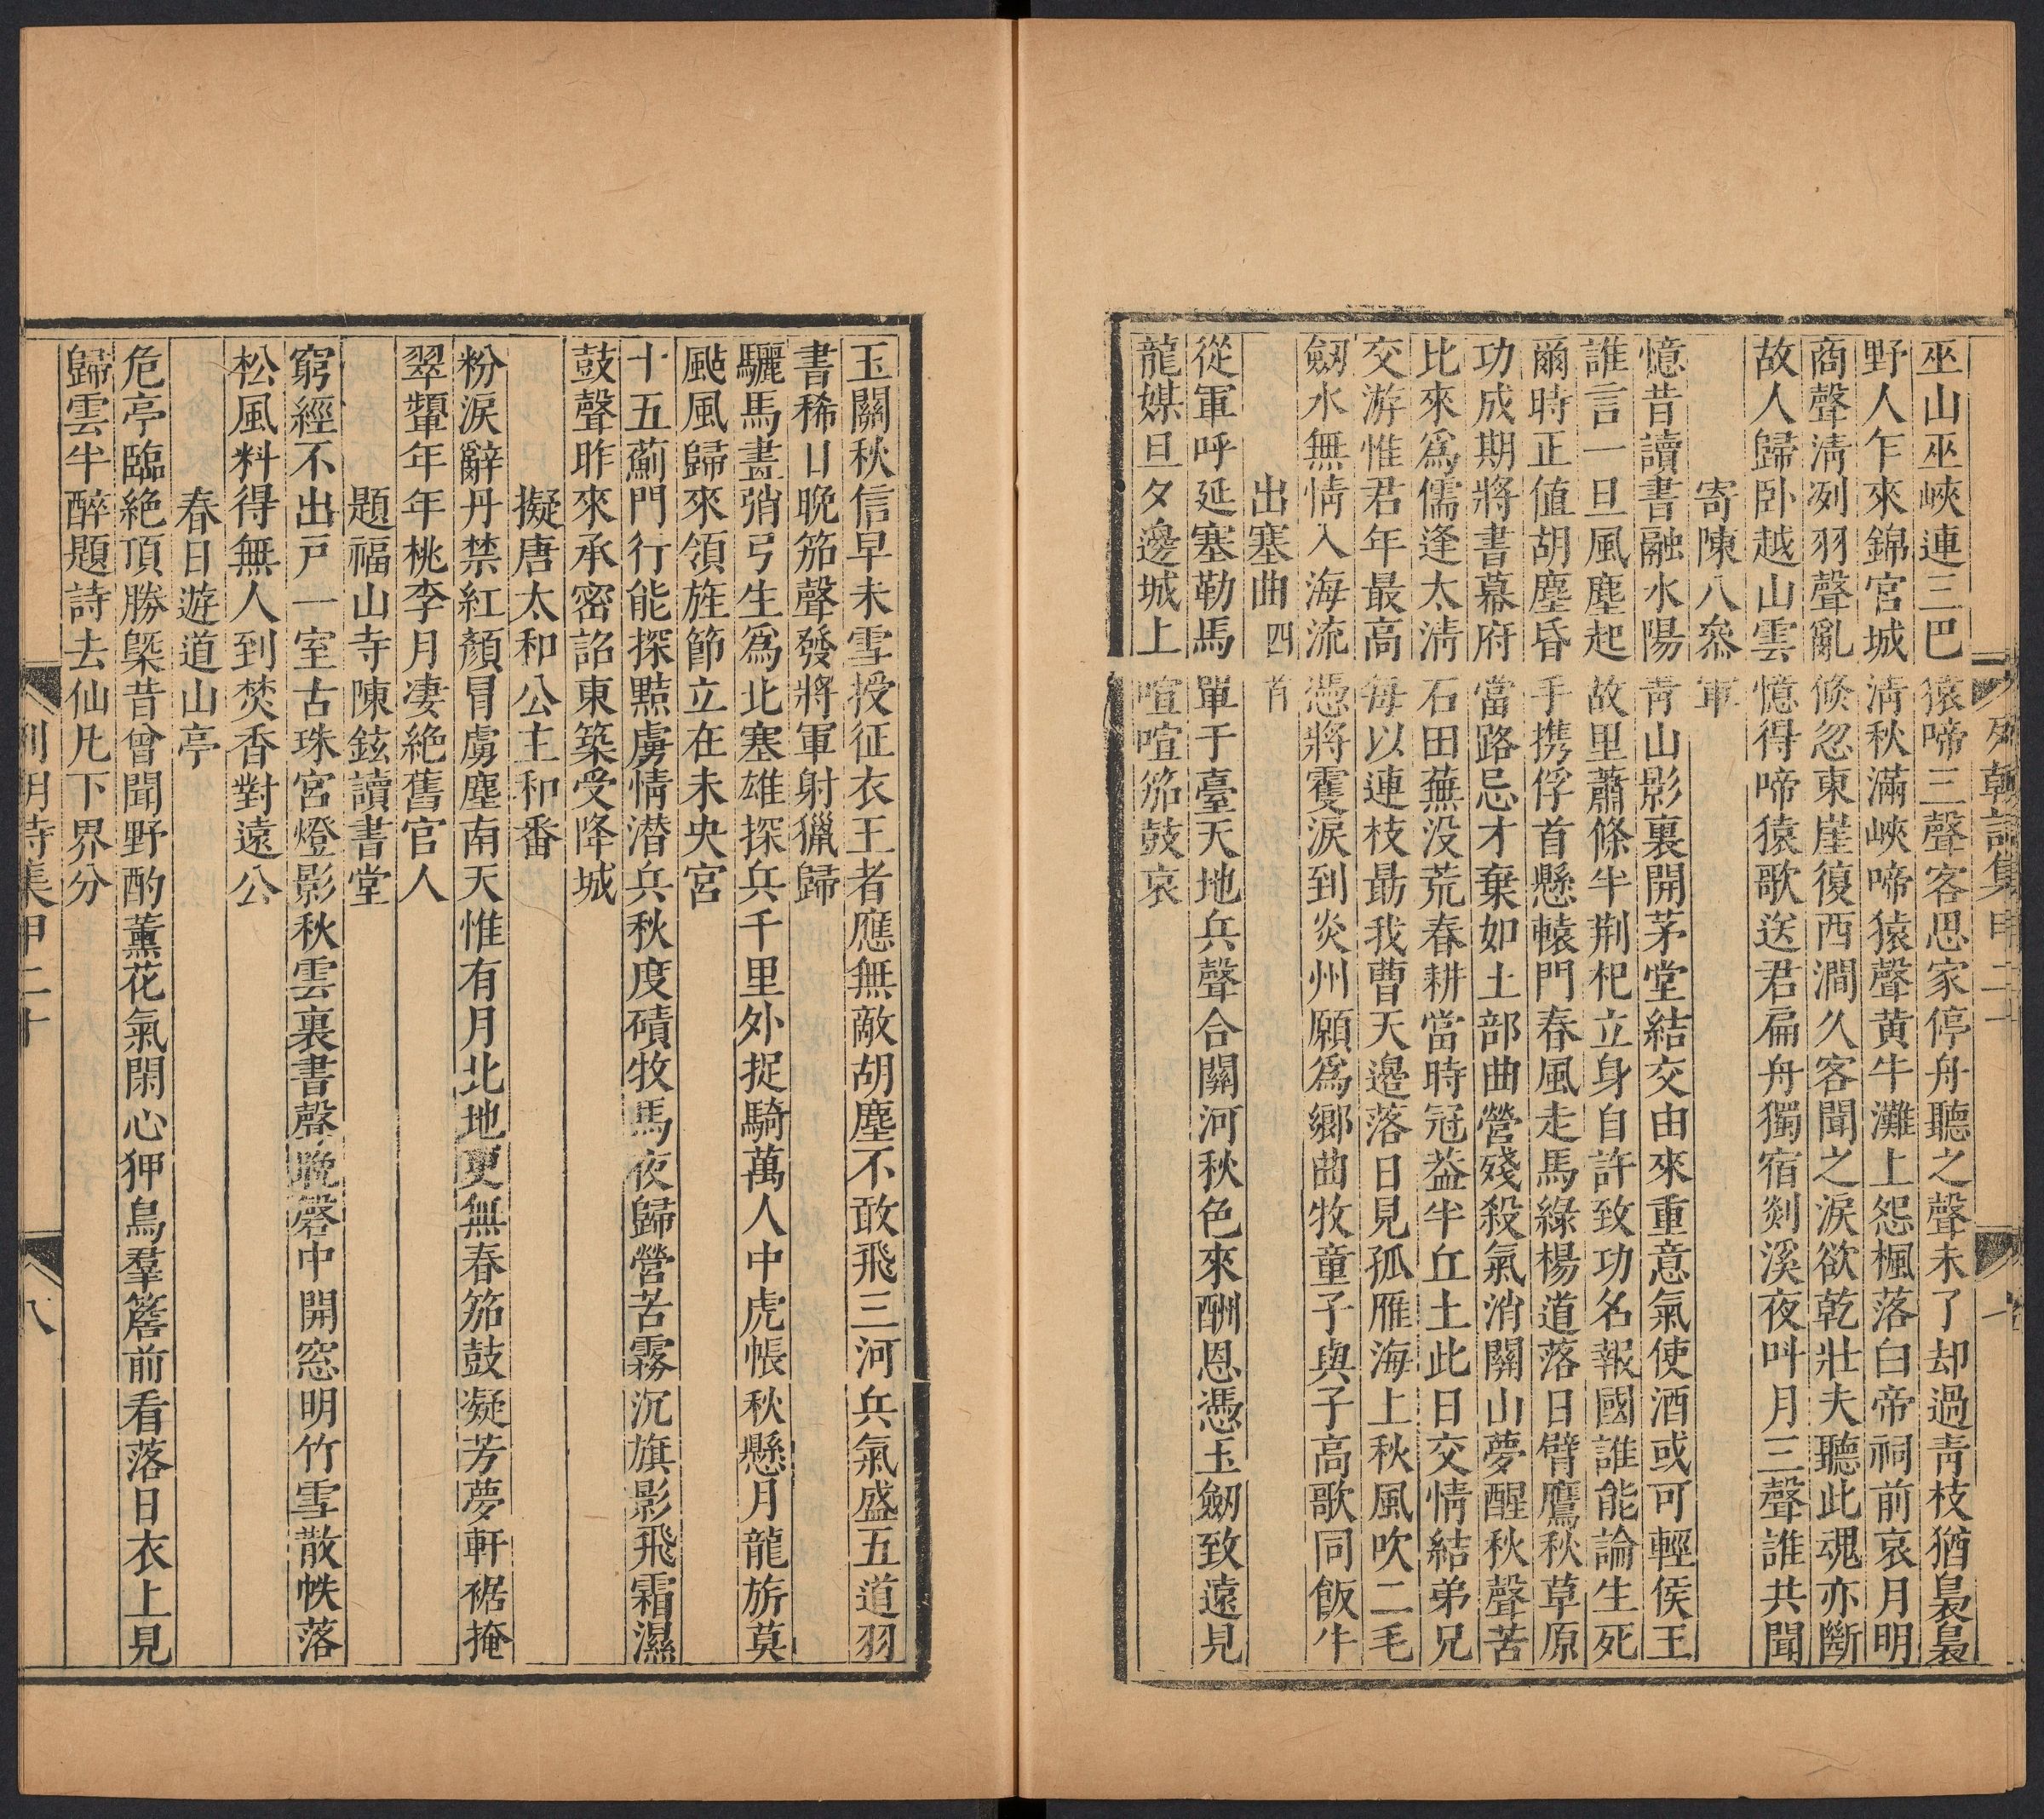 巫山巫峽連三巴猿啼三聲客思家停舟聽之聲未了却過靑枝猶裊裊
野人乍來錦宮城淸秋滿峽啼猿聲黃牛灘上怨楓落白帝祠前哀月明
商聲淸冽羽聲亂倐忽東崖復西澗久客聞之淚欲乾壯夫聽此魂亦斷
故人歸卧越山雲憶得啼猿歌送君扁舟獨宿剡溪夜呌月三聲誰共聞
寄陳八叅軍
憶昔讀書融水陽靑山影裏開茅堂結交由來重意氣使酒或可輕侯王
誰言一旦風塵起故里蕭條半荆杞立身自許致功名報國誰能論生死
爾時正值胡塵昏手携俘首懸轅門春風走馬綠楊道落日臂鷹秋草原
功成期將書幕府當路忌才棄如土部曲營殘殺氣消關山夢醒秋聲苦
比來爲儒逢太淸石田蕪没荒春耕當時冠葢半丘土此日交情結弟兄
交游惟君年最高每以連枝勗我曹天邊落日見孤雁海上秋風吹二毛
劒水無情入海流憑將雙淚到炎州願爲鄉曲牧童子與子高歌同飯牛
出塞曲四首
從軍呼延塞勒馬單于臺天地兵聲合關河秋色來酬恩憑玉劒致遠見
龍媒旦夕邊城上喧喧笳鼓哀
玉關秋信早未雪授征衣王者應無敵胡塵不敢飛三河兵氣盛五道羽
書稀日晚笳聲發將軍射獵歸
驪馬晝弰弓生爲北塞雄探兵千里外捉騎萬人中虎帳秋懸月龍旂莫
颭風歸來領旌節立在未央宮
十五薊門行能探㸃虜情潜兵秋度磧牧馬夜歸營苦霧沉旗影飛霜濕
鼓聲昨來承密詔東築受降城
擬唐太和公主和番
粉淚辭丹禁紅顏冒虜塵南天惟有月北地更無春笳鼓凝芳夢軒裾掩
翠顰年年桃李月凄絶舊官人
題福山寺陳鉉讀書堂
窮經不出戸一室古珠宮燈影秋雲裏書聲晚磬中開窓明竹雪散帙落
松風料得無人到焚香對遠公
春日遊道山亭
危亭臨絶頂勝槩昔曾聞野酌薰花氣閑心狎鳥羣簷前看落日衣上見
歸雲半醉題詩去仙凡下界分
列朝詩集甲二十
八